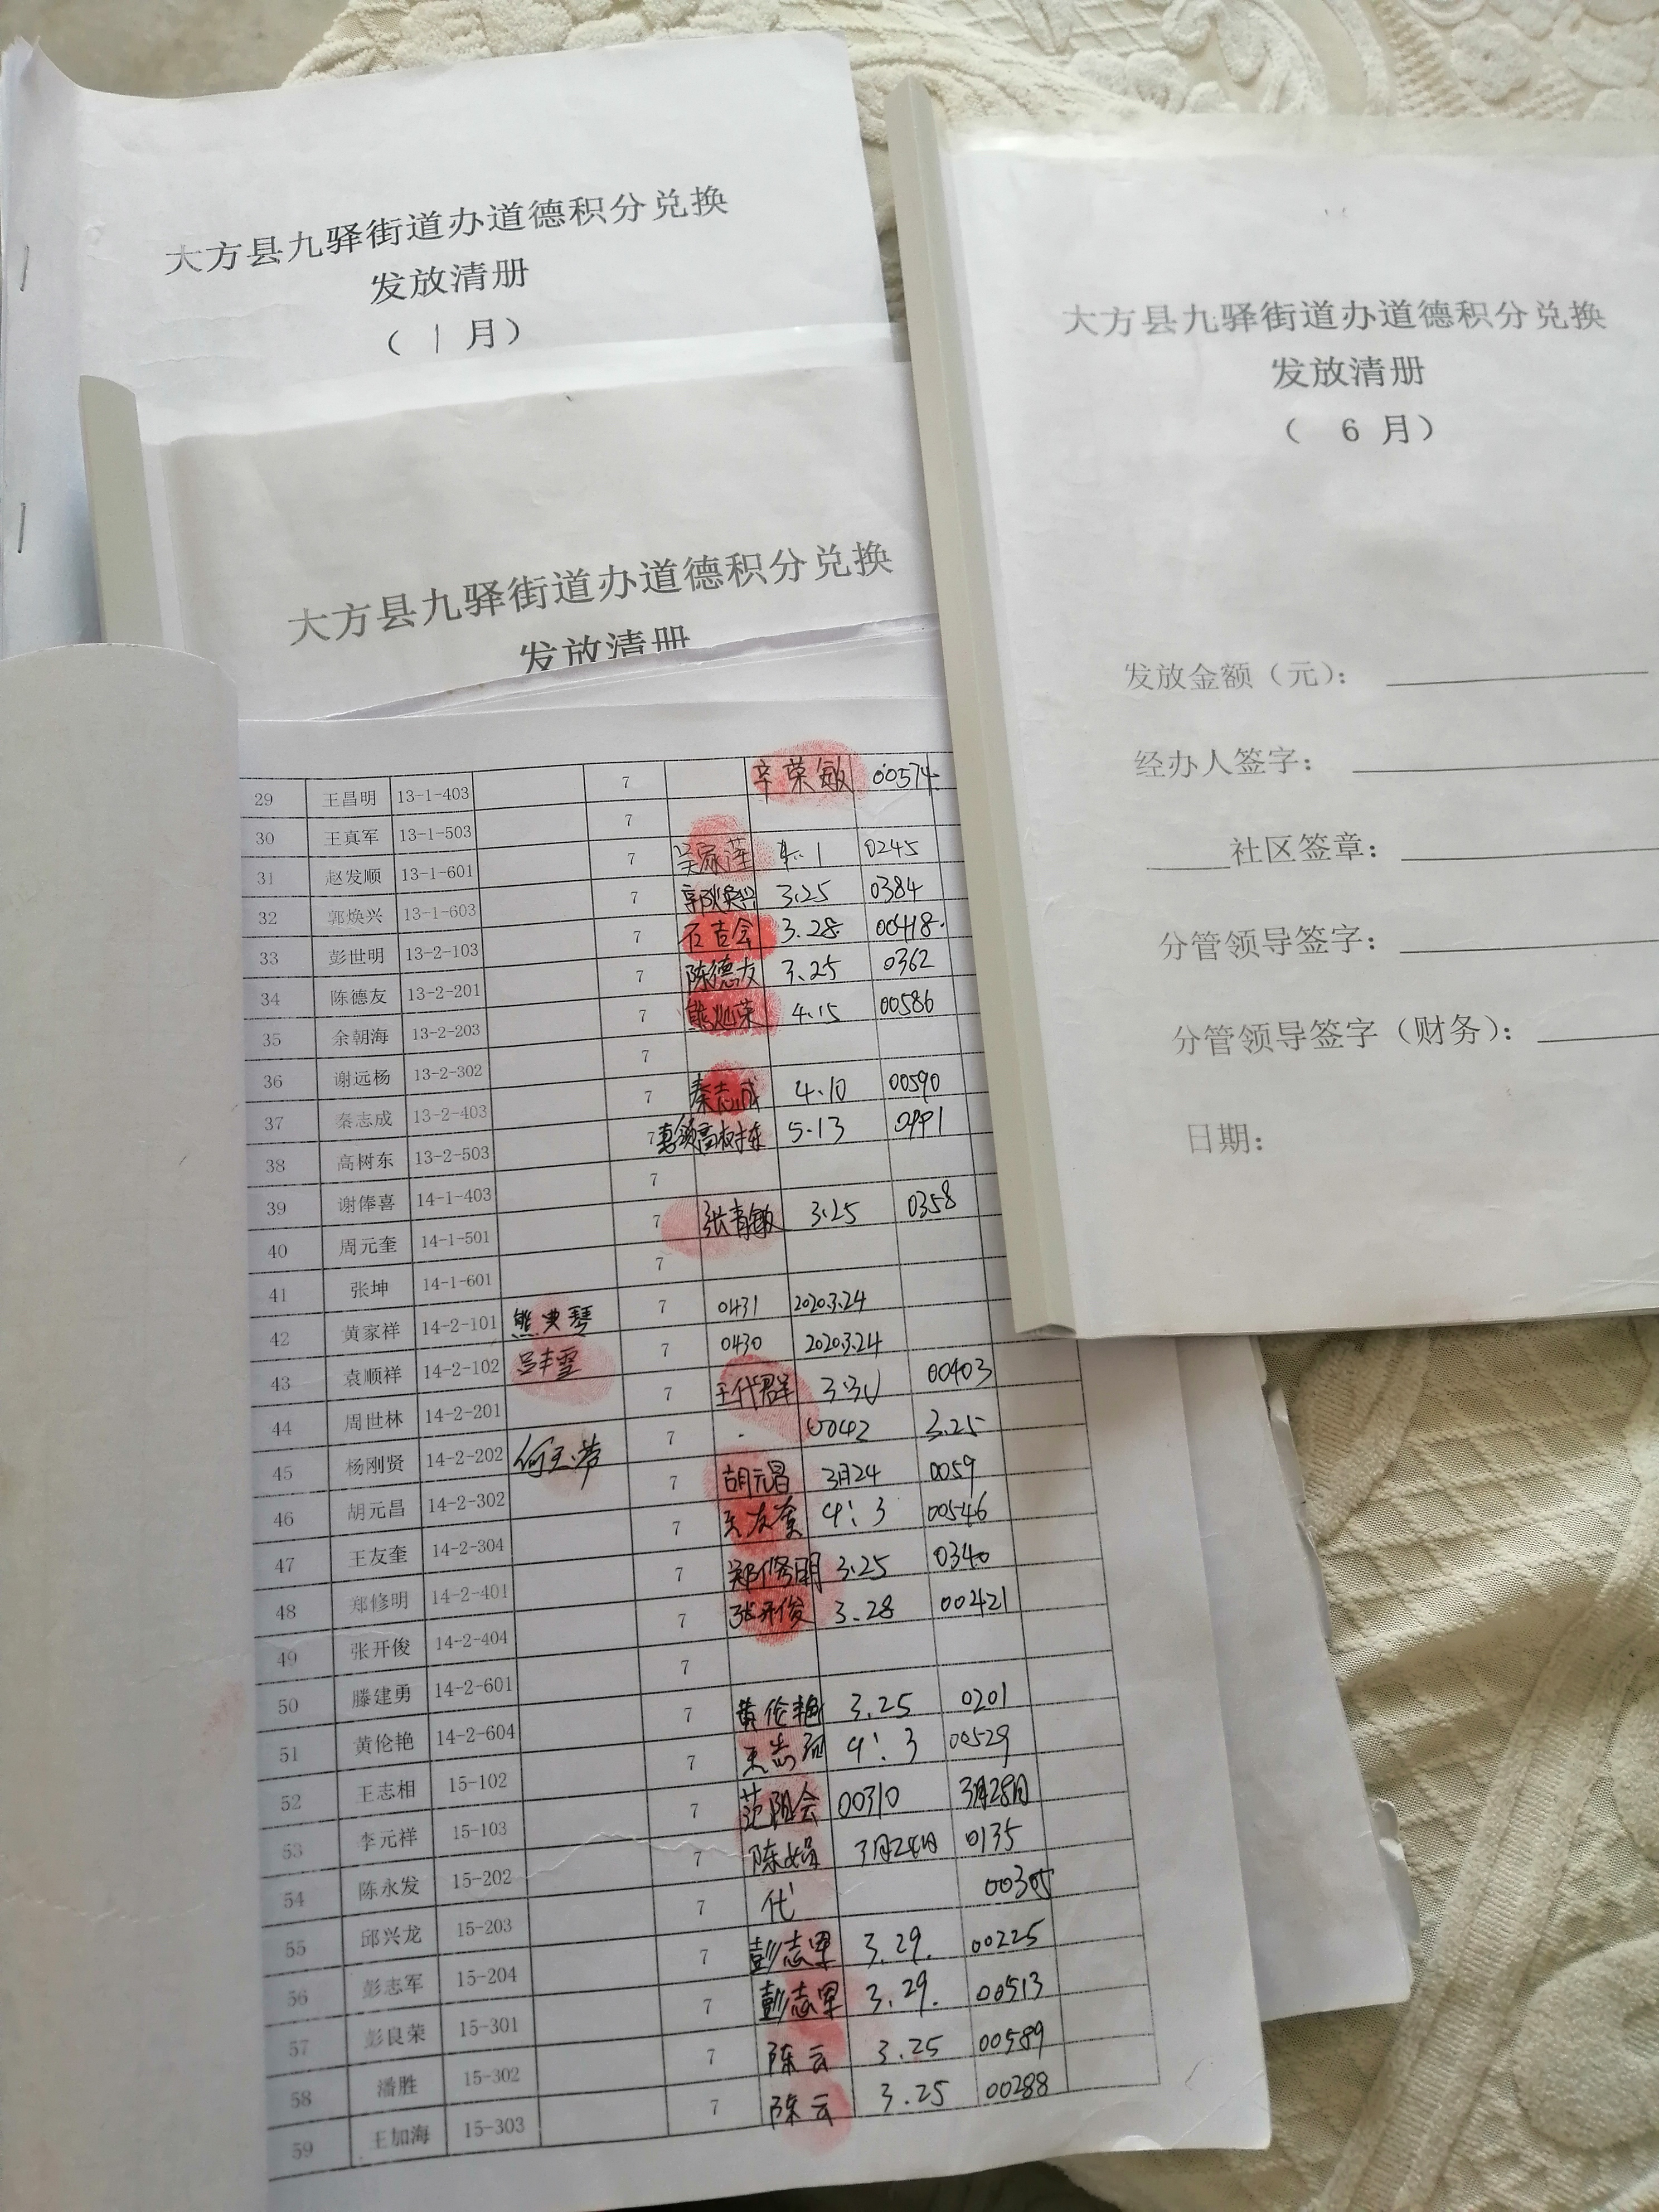 大方县九驿街道办道德积分兑换
发放清册
( 1 月)
大方县九驿街道办道德积分兑换
发放清册
大方县九驿街道办道德积分兑换
发放清册
( 6 月)
发放金额(元):
经办人签字:
社区签章:
分管领导签字:
分管领导签字(财务):
日期:
29 王昌明 13-1-403 7 辛荣敏 00574
30 王真军 13-1-503 7
31 赵发顺 13-1-601 7 4.1 0245
32 郭焕兴 13-1-603 7 郭焕兴 3.25 0384
33 彭世明 13-2-103 7 石吉会 3.28 00418
34 陈德友 13-2-201 7 陈德友 3.25 0362
35 余朝海 13-2-203 7 4.15 00586
36 谢远杨 13-2-302 7
37 秦志成 13-2-403 7 秦志成 4.10 00590
38 高树东 13-2-503 7 5.13
39 谢俸喜 14-1-403 7
40 周元奎 14-1-501 7 张青敏 3.25 0358
41 张坤 14-1-601 7
42 黄家祥 14-2-101 7 0431 2020.3.24
43 袁顺祥 14-2-102 7 0430 2020.3.24
44 周世林 14-2-201 7 王代群 00403
45 杨刚贤 14-2-202 7 0042 3.25
46 胡元昌 14-2-302 7 胡元昌 3月24 0059
47 王友奎 14-2-304 7 王友奎 4:3 00546
48 郑修明 14-2-401 7 郑修明 3.25 0340
49 张开俊 14-2-404 7 张开俊 3.28 00421
50 滕建勇 14-2-601 7
51 黄伦艳 14-2-604 7 黄伦艳 3.25 0201
52 王志相 15-102 7 4:3 00529
53 李元祥 15-103 7 00310 3月28日
54 陈永发 15-202 7 陈娟 3月24日 0135
55 邱兴龙 15-203 7 代 00305
56 彭志军 15-204 7 彭志军 3.29. 00225
57 彭良荣 15-301 7 彭志军 3.29. 00513
58 潘胜 15-302 7 陈云 3.25 00589
59 王加海 15-303 7 陈云 3.25 00288